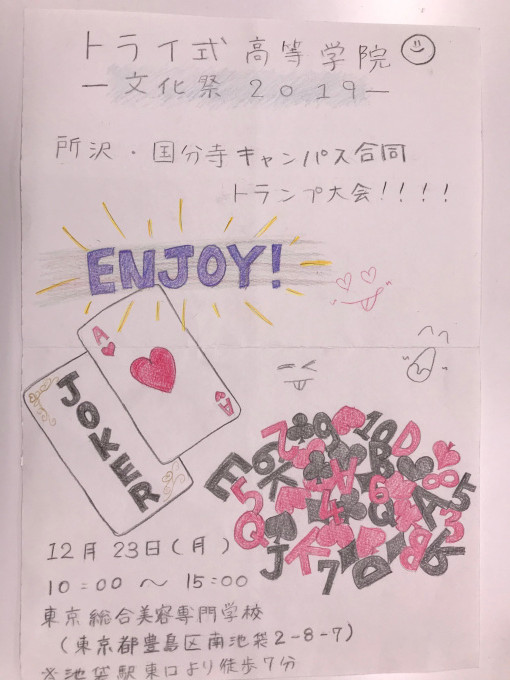 トライ式高等学院
ー文化祭2019ー
所沢・国分寺キャンパス合同
トランプ大会!!!!
ENJOY!
A
A
JOKER
12月23日(月)
10:00 ～ 15:00
東京総合美容専門学校
(東京都豊島区南池袋2-8-7)
※池袋駅東口より徒歩7分